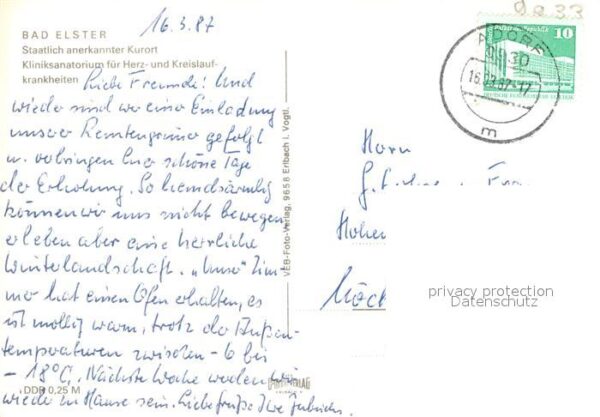 16.3.87
BAD ELSTER
Staatlich anerkannter Kurort
Kliniksanatorium für Herz- und Kreislauf-
krankheiten
Liebe Freunde! Und
wieder sind wir einer Einladung
unserer gefolgt
u. verbringen hier schöne Tage
der Erholung. So hemdsärmlig
können wir uns nicht bewegen
erleben aber eine herrliche
Winterlandschaft. „Unser" Zim-
mer hat einen Ofen erhalten, es
ist mollig warm, trotz der Außen-
temperaturen zwischen -6 bis
-18°C. Nächste Woche werden wir
wieder in Hause sein. Liebe Grüße Ihre
DDR 0,25 M
VEB-Foto-Verlag, 9658 Erlbach i. Vogtl.
10
ADORF
9930
16.03.87-17
m
Herrn
privacy protection
Datenschutz